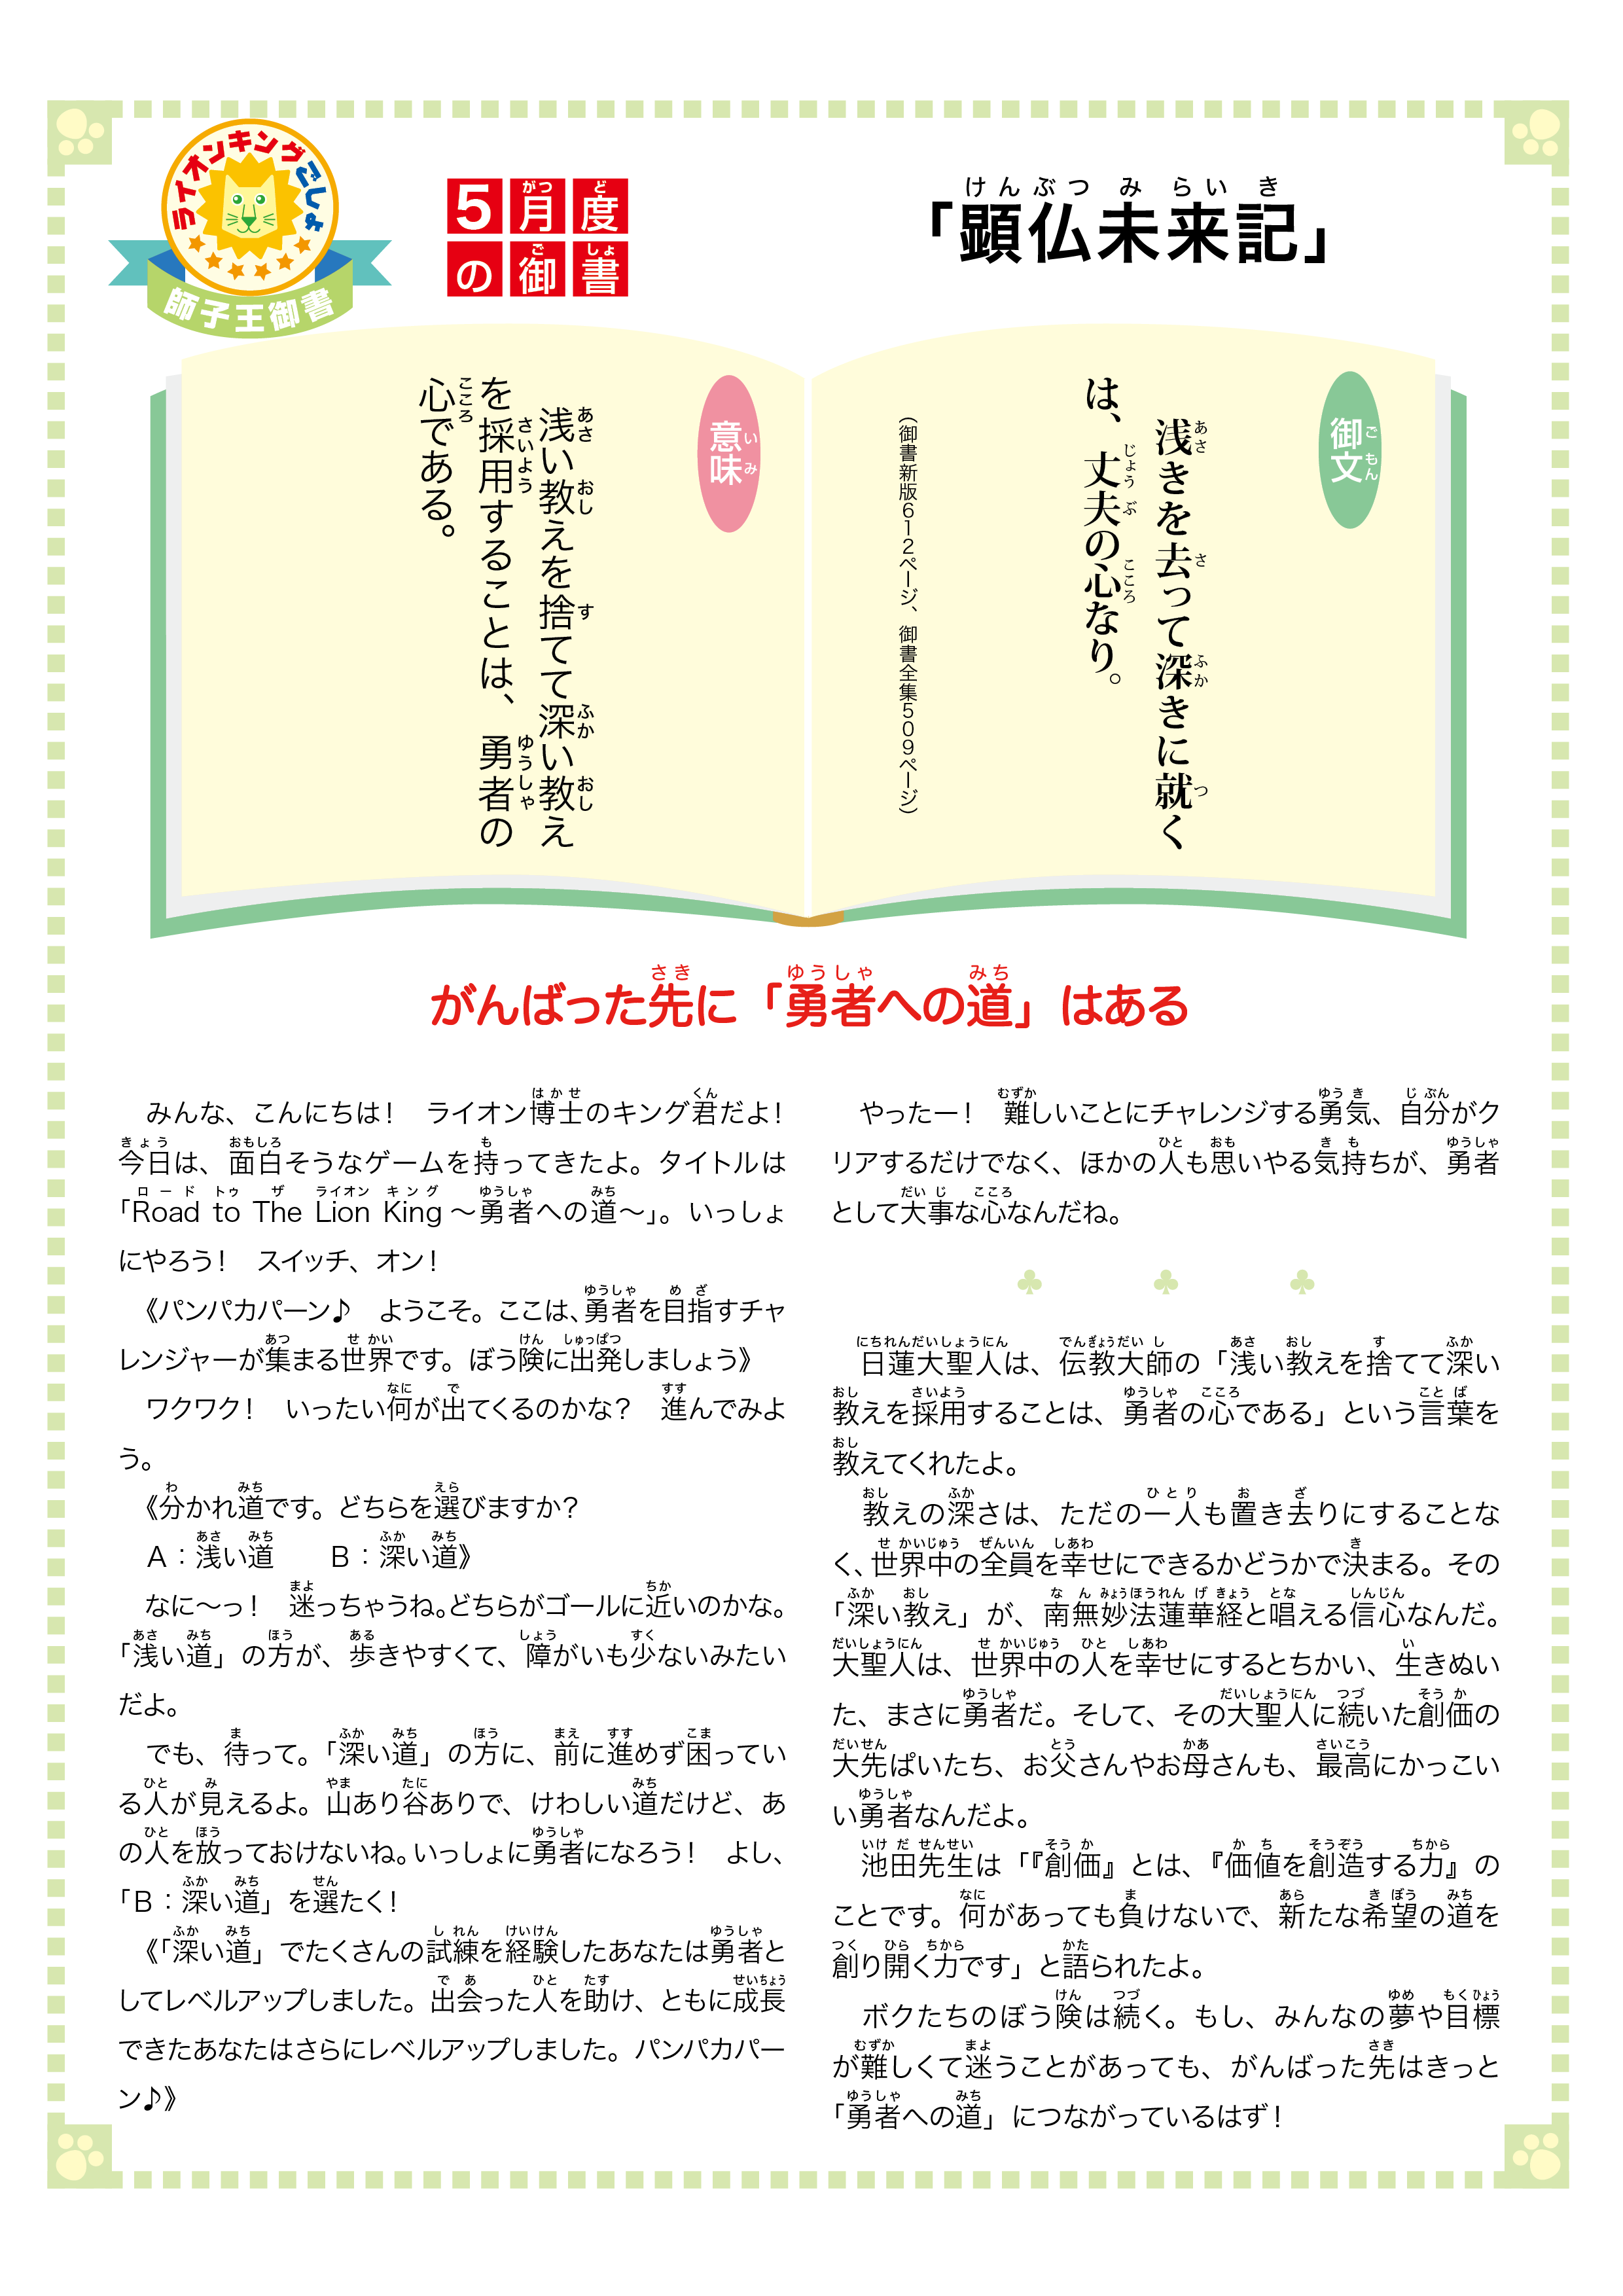 ライオンキングごしょ
師子王御書
5月度
の御書
「顕仏未来記」
御文
浅きを去って深きに就く
は、丈夫の心なり。
（御書新版612ページ、御書全集509ページ）
意味
浅い教えを捨てて深い教え
を採用することは、勇者の
心である。
がんばった先に「勇者への道」はある
みんな、こんにちは！　ライオン博士のキング君だよ！
今日は、面白そうなゲームを持ってきたよ。タイトルは
「Road to The Lion King～勇者への道～」。いっしょ
にやろう！　スイッチ、オン！
《パンパカパーン♪　ようこそ。ここは、勇者を目指すチャ
レンジャーが集まる世界です。ぼう険に出発しましょう》
ワクワク！　いったい何が出てくるのかな？　進んでみよ
う。
《分かれ道です。どちらを選びますか？
A：浅い道　　B：深い道》
なに～っ！　迷っちゃうね。どちらがゴールに近いのかな。
「浅い道」の方が、歩きやすくて、障がいも少ないみたい
だよ。
でも、待って。「深い道」の方に、前に進めず困ってい
る人が見えるよ。山あり谷ありで、けわしい道だけど、あ
の人を放っておけないね。いっしょに勇者になろう！　よし、
「B：深い道」を選たく！
《「深い道」でたくさんの試練を経験したあなたは勇者と
してレベルアップしました。出会った人を助け、ともに成長
できたあなたはさらにレベルアップしました。パンパカパー
ン♪》
やったー！　難しいことにチャレンジする勇気、自分がク
リアするだけでなく、ほかの人も思いやる気持ちが、勇者
として大事な心なんだね。
♣　♣　♣
日蓮大聖人は、伝教大師の「浅い教えを捨てて深い
教えを採用することは、勇者の心である」という言葉を
教えてくれたよ。
教えの深さは、ただの一人も置き去りにすることな
く、世界中の全員を幸せにできるかどうかで決まる。その
「深い教え」が、南無妙法蓮華経と唱える信心なんだ。
大聖人は、世界中の人を幸せにするとちかい、生きぬい
た、まさに勇者だ。そして、その大聖人に続いた創価の
大先ぱいたち、お父さんやお母さんも、最高にかっこい
い勇者なんだよ。
池田先生は「『創価』とは、『価値を創造する力』の
ことです。何があっても負けないで、新たな希望の道を
創り開く力です」と語られたよ。
ボクたちのぼう険は続く。もし、みんなの夢や目標
が難しくて迷うことがあっても、がんばった先はきっと
「勇者への道」につながっているはず！